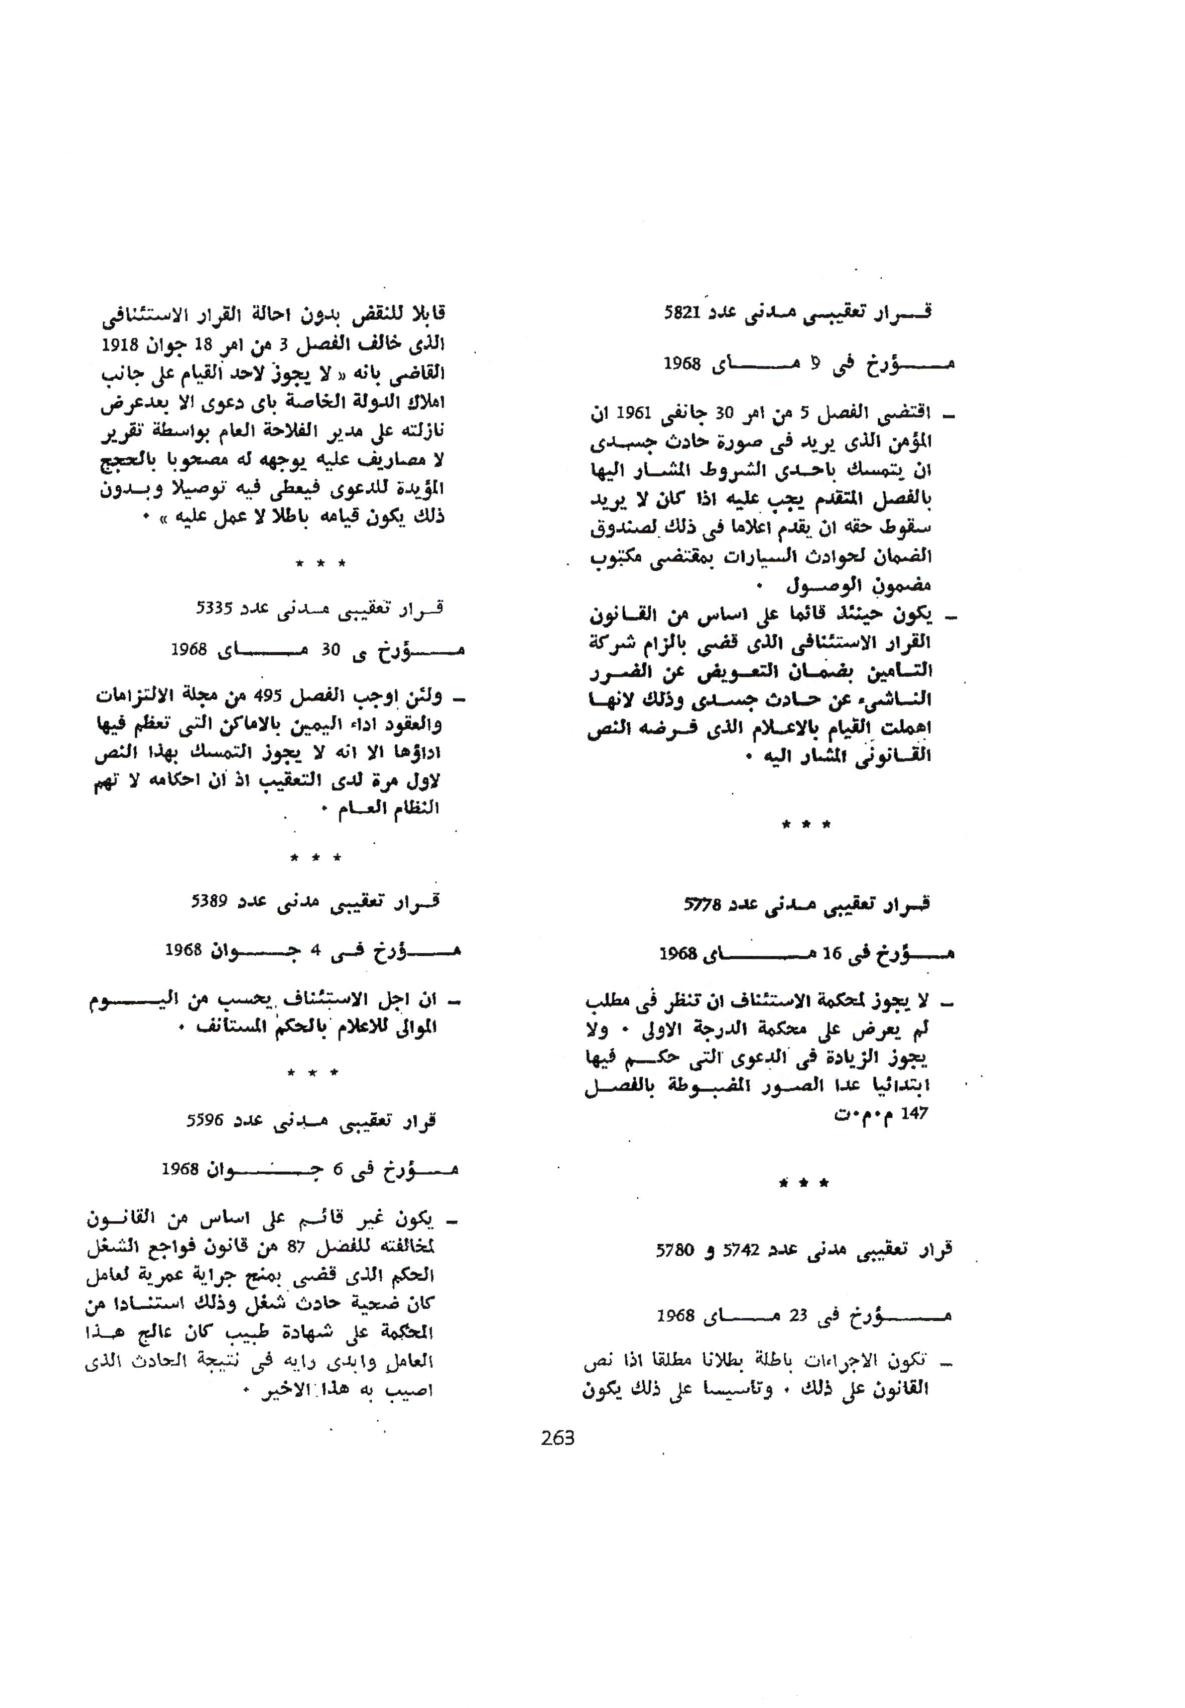 قرار تعقيبى مدنى عدد 5821
مؤرخ فى 9 ماى 1968
ـ اقتضى الفصل 5 من امر 30 جانفى 1961 ان
المؤمن الذى يريد فى صورة حادث جسدى
ان يتمسك باحدى الشروط المشار اليها
بالفصل المتقدم يجب عليه اذا كان لا يريد
سقوط حقه ان يقدم اعلاما فى ذلك لصندوق
الضمان لحوادث السيارات بمقتضى مكتوب
مضمون الوصول ٠
ـ يكون حينئذ قائما على اساس من القانون
القرار الاستئنافى الذى قضى بالزام شركة
التامين بضمان التعويض عن الضرر
الناشىء عن حادث جسدى وذلك لانها
اهملت القيام بالاعلام الذى فرضه النص
القانونى المشار اليه ٠
* * *
قرار تعقيبى مدنى عدد 5778
مؤرخ فى 16 ماى 1968
ـ لا يجوز لمحكمة الاستئناف ان تنظر فى مطلب
لم يعرض على محكمة الدرجة الاولى ٠ ولا
يجوز الزيادة فى الدعوى التى حكم فيها
ابتدائيا عدا الصور المضبوطة بالفصل
147 م٠م٠ت
* * *
قرار تعقيبى مدنى عدد 5742 و 5780
مؤرخ فى 23 ماى 1968
ـ تكون الاجراءات باطلة بطلانا مطلقا اذا نص
القانون على ذلك ٠ وتاسيسا على ذلك يكون
قابلا للنقض بدون احالة القرار الاستئنافى
الذى خالف الفصل 3 من امر 18 جوان 1918
القاضى بانه « لا يجوز لاحد القيام على جانب
املاك الدولة الخاصة باى دعوى الا بعدعرض
نازلته على مدير الفلاحة العام بواسطة تقرير
لا مصاريف عليه يوجهه له مصحوبا بالحجج
المؤيدة للدعوى فيعطى فيه توصيلا وبدون
ذلك يكون قيامه باطلا لا عمل عليه » ٠
* * *
قرار تعقيبى مدنى عدد 5335
مؤرخ ى 30 ماى 1968
ـ ولئن اوجب الفصل 495 من مجلة الالتزامات
والعقود اداء اليمين بالاماكن التى تعظم فيها
اداؤها الا انه لا يجوز التمسك بهذا النص
لاول مرة لدى التعقيب اذ ان احكامه لا تهم
النظام العام ٠
* * *
قرار تعقيبى مدنى عدد 5389
مؤرخ فى 4 جوان 1968
ـ ان اجل الاستئناف يحسب من اليوم
الموالى للاعلام بالحكم المستانف ٠
* * *
قرار تعقيبى مدنى عدد 5596
مؤرخ فى 6 جوان 1968
ـ يكون غير قائم على اساس من القانون
لمخالفته للفصل 87 من قانون فواجع الشغل
الحكم الذى قضى بمنح جراية عمرية لعامل
كان ضحية حادث شغل وذلك استنادا من
المحكمة على شهادة طبيب كان عالج هذا
العامل وابدى رايه فى نتيجة الحادث الذى
اصيب به هذا الاخير ٠
263